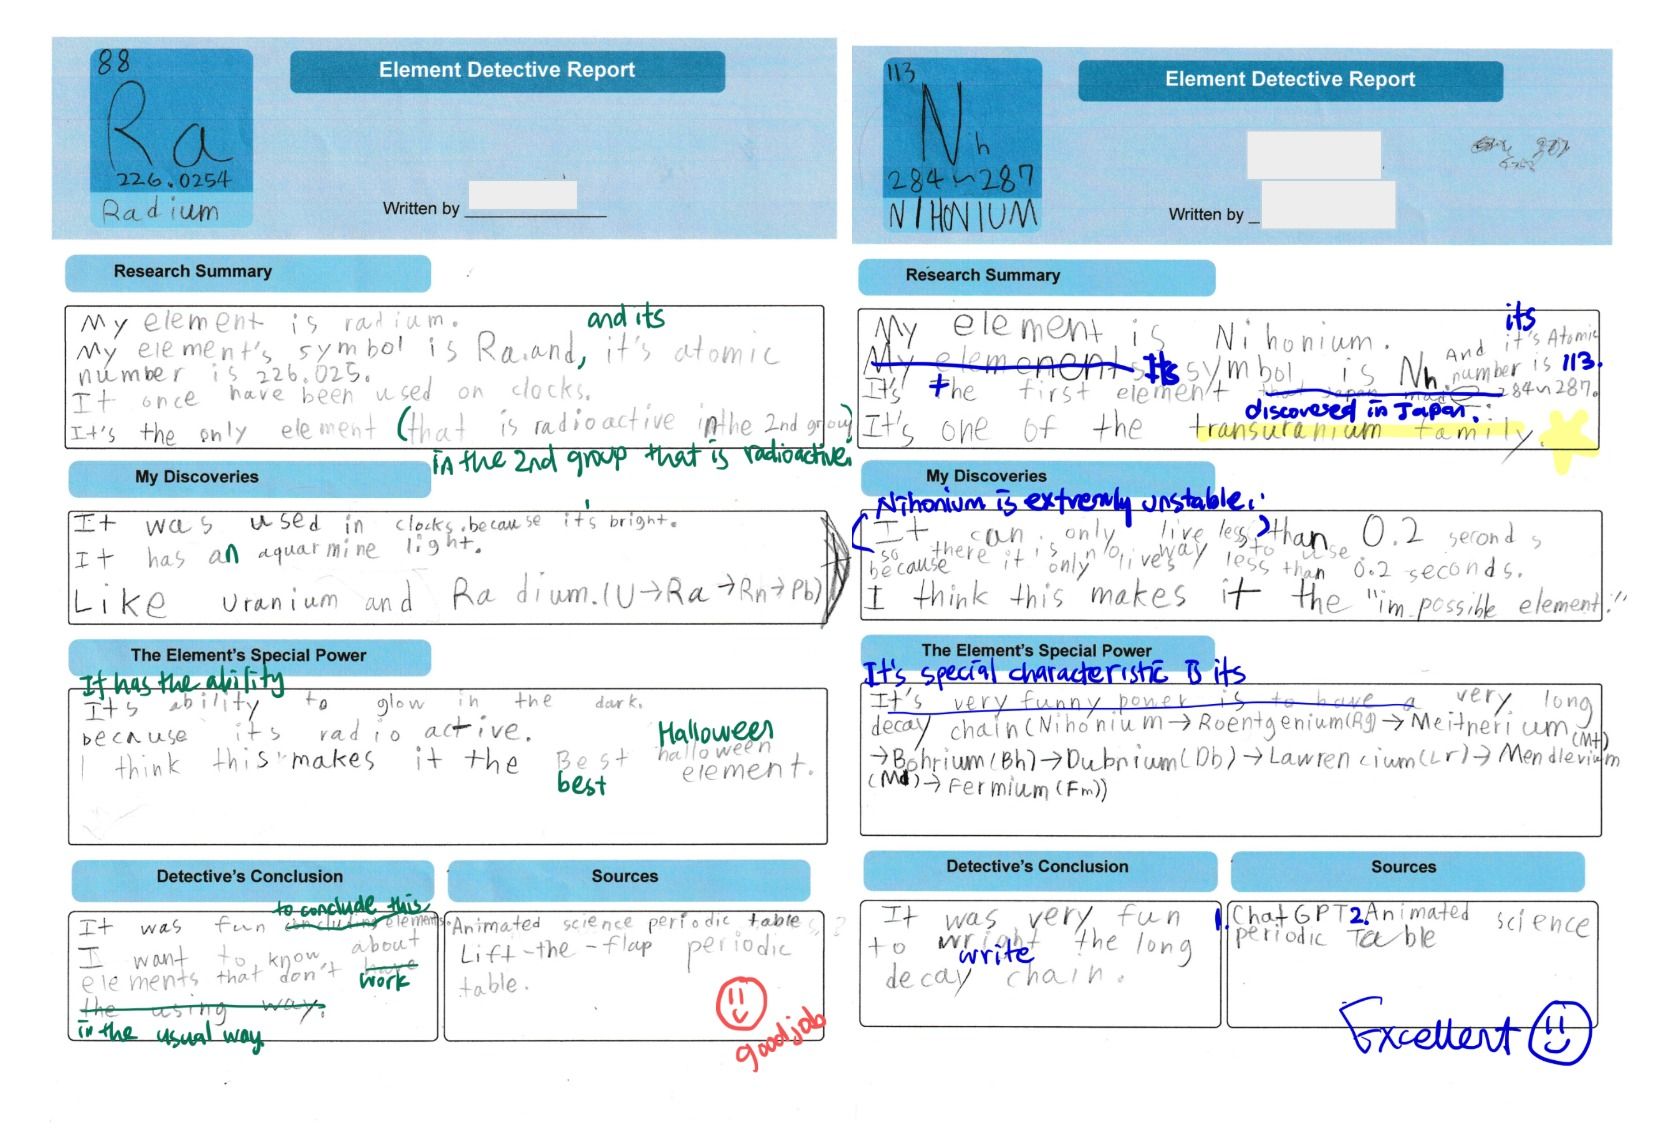 88
Ra
226.0254
Radium
Element Detective Report
Written by
Research Summary
My element is radium.
and its
My element's symbol is Ra.and, it's atomic
number is 226.025.
It once have been used on clocks.
It's the only element (that is radioactive in the 2nd group)
in the 2nd group that is radioactive.
My Discoveries
It was used in clocks.because it's bright.
It has an aquarmine light.
Like Uranium and Radium.(U→Ra→Rn→Pb)
The Element's Special Power
It has the ability
It's ability to glow in the dark.
because its radioactive.
Halloween
I think this makes it the Best halloween element.
best
Detective's Conclusion
to conclude this
It was fun concluding elements.
I want to know about
elements that don't have
work
the using way.
in the usual way.
Sources
Animated science periodic table
Lift-the-flap periodic
table.
good job
113
Nh
284~287
NIHONIUM
Element Detective Report
Written by
Research Summary
My element is Nihonium.
its
My elemenent's Its symbol is Nh. And it's Atomic number is 113.
284~287.
It's the first element that Japan made
discovered in Japan.
It's one of the transuranium family.
My Discoveries
Nihonium is extremly unstable.
It can only live less than 0.2 seconds
so there is no way to use it
because it only lives less than 0.2 seconds.
I think this makes it the "impossible element."
The Element's Special Power
It's special characteristic is its
It's very funny power is to have a very long
decay chain(Nihonium→Roentgenium(Rg)→Meitnerium(Mt)
→Bohrium(Bh)→Dubnium(Db)→Lawrencium(Lr)→Mendlevium
(Md)→Fermium(Fm))
Detective's Conclusion
It was very fun
to wright the long
write
decay chain.
Sources
1. ChatGPT 2. Animated science
periodic Table
Excellent